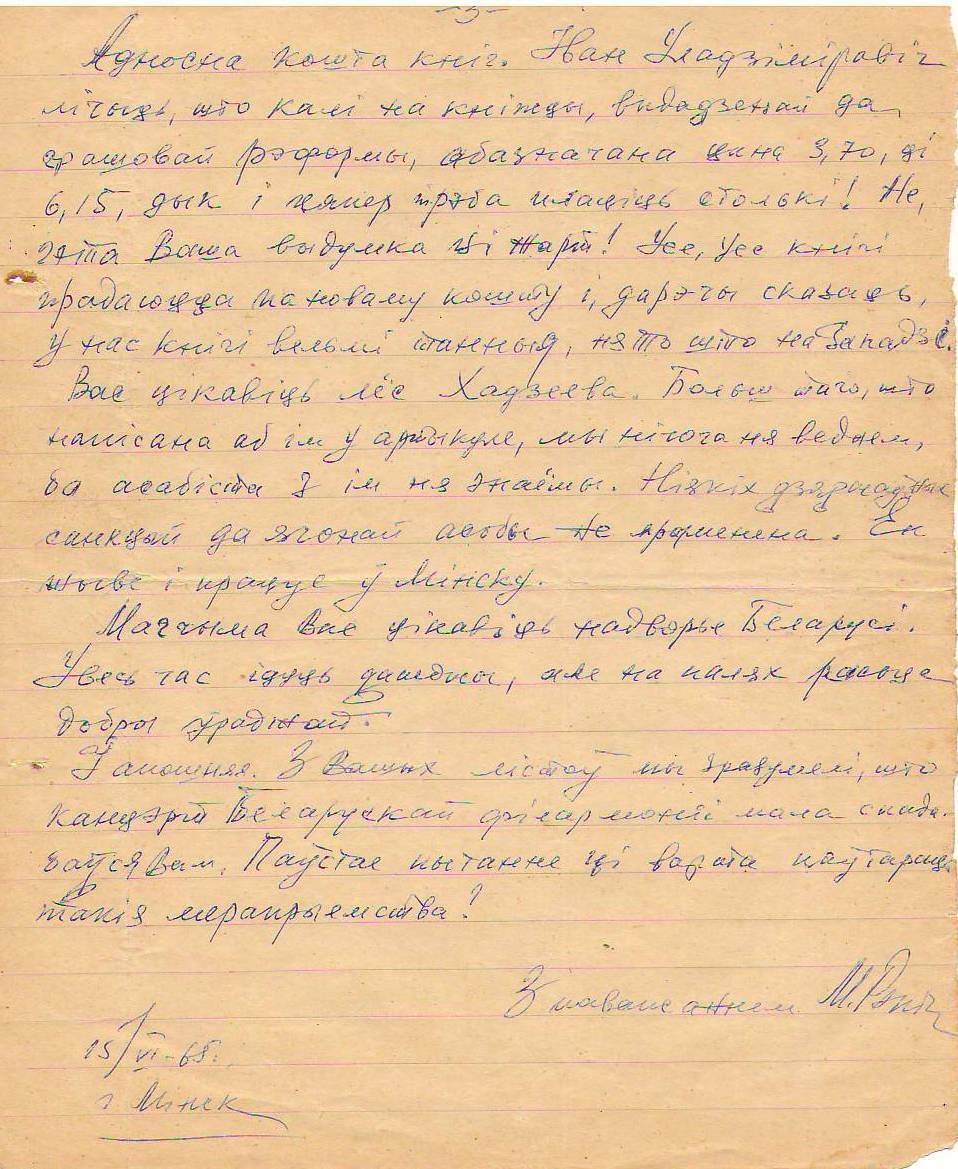 -3-
Адносна кошта кніг. Іван Уладзіміравіч
лічыць, што калі на кніжцы, выдадзенай да
грашовай рэформы, абазначана цана 3,70, ці
6,15, дык і цяпер трэба плаціць столькі! Не,
гэта Ваша выдумка ці жарт! Усе, усе кнігі
прадаюцца па новаму кошту і, дарэчы сказаць,
у нас кнігі вельмі танныя, ня то што на Западзе.
Вас цікавіць лёс Хадзеева. Больш таго, што
напісана аб ім у артыкуле, мы нічога ня ведаем,
бо асабіста з ім ня знаёмы. Ніякіх дзяржаўных
санкцый да ягонай асобы не прыменена. Ён
жыве і працуе ў Мінску.
Магчыма Вас цікавіць надворье Беларусі.
Увесь час ідуць дажджы, але на палях расьце
добры ўраджай.
І апошняя. З Вашых лістоў мы зразумелі, што
канцэрт Беларускай філармоніі мала спада-
баўся Вам. Паўстае пытанне ці варта паўтараць
такія мерапрыемствы?
З паважаннем М. Рэпіч
15/VI-65г.
г Мінск